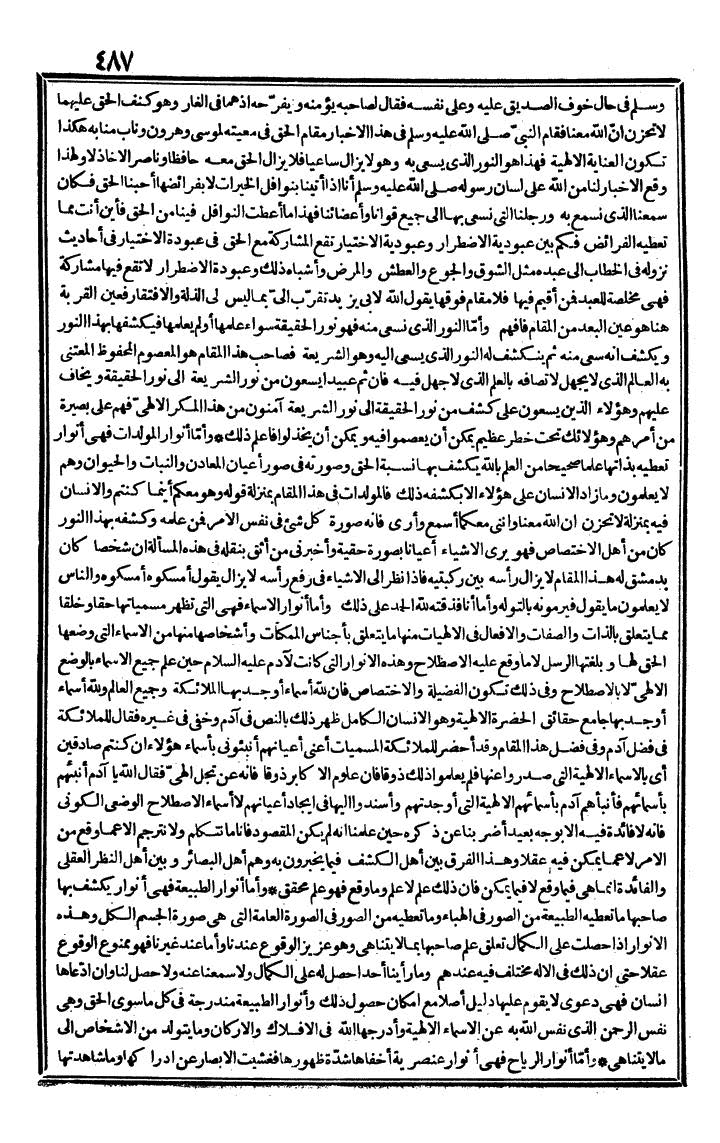 ٤٨٧
وسلم فى حال خوف الصديق عليه وعلى نفسه فقال لصاحبه يؤمنه ويفرّحه اذهما فى الغار وهو كنف الحق عليهما
لا تحزن انّ الله معنا فقام النبىّ صلى الله عليه وسلم فى هذا الاخبار مقام الحق فى معيته لموسى وهرون وناب منابه هكذا
تكون العناية الالهية فهذا هو النور الذى يسعى به وهو لا يزال ساعيا فلا يزال الحق معه حافظا وناصرا لاخاذلا ولهذا
وقع الاخبار لنا من الله على لسان رسوله صلى الله عليه وسلم أنا اذا أتينا بنوافل الخيرات لا بفرائضها أحبنا الحق فكان
سمعنا الذى نسمع به ورجلنا التى نسعى بها الى جميع قوانا وأعضائنا فهذا ما أعطت النوافل فينا من الحق فأين أنت مما
تعطيه الفرائض فكم بين عبودية الاضطرار وعبودية الاختيار تقع المشاركة مع الحق فى عبودة الاختيار فى أحاديث
نزوله فى الخطاب الى عبده مثل الشوق والجوع والعطش والمرض وأشباه ذلك وعبودة الاضطرار لا تقع فيها مشاركة
فهى مخلصة للعبد فمن أقيم فيها فلا مقام فوقها يقول الله لابى يزيد تقرّب الىّ بما ليس لى الذلة والافتقار فعين القربة
هنا هو عين البعد من المقام فافهم وأمّا النور الذى نسعى منه فهو نور الحقيقة سواء علمها أو لم يعلمها فيكشفها بهذا النور
ويكشف انه سعى منه ثم ينكشف له النور الذى يسعى اليه وهو الشريعة فصاحب هذا المقام هو المعصوم المحفوظ المعتنى
به العالم الذى لا يجهل لاتصافه بالعلم الذى لا جهل فيه فان ثم عبيدا يسعون من نور الشريعة الى نور الحقيقة ويخاف
عليهم وهؤلاء الذين يسعون على كشف من نور الحقيقة الى نور الشريعة آمنون من هذا المكر الالهىّ فهم على بصيرة
من أمرهم وهؤلائك تحت خطر عظيم يمكن أن يعصموا فيه ويمكن أن يخذلوا فاعلم ذلك * وأمّا أنوار المولدات فهى أنوار
تعطيه بذاتها علما صحيحا من العلم بالله يكشف بها نسبة الحق وصورته فى صور أعيان المعادن والنبات والحيوان وهم
لا يعلمون وما زاد الانسان على هؤلاء الا بكشفه ذلك فالمولدات فى هذا المقام بمنزلة قوله وهو معكم أينما كنتم والانسان
فيه بمنزلة لا تحزن ان الله معنا واننى معكما أسمع وأرى فانه صورة كل شئ فى نفس الامر فمن علمه وكشفه بهذا النور
كان من أهل الاختصاص فهو يرى الاشياء أعيانا بصورة حقية وأخبرنى من أثق بنقله فى هذه المسألة ان شخصا كان
بدمشق له هذا المقام لا يزال رأسه بين ركبتيه فاذا نظر الى الاشياء فى رفع رأسه لا يزال يقول أمسكوه أمسكوه والناس
لا يعلمون ما يقول فيرمونه بالتوله وأما أنا فذقته لله الحمد على ذلك وأما أنوار الاسماء فهى التى تظهر مسمياتها حقا وخلقا
مما يتعلق بالذات والصفات والافعال فى الالهيات منها ما يتعلق بأجناس الممكنات وأشخاصها منها من الاسماء التى وضعها
الحق لها وبلغتها الرسل لا ما وقع عليه الاصطلاح وهذه الانوار التى كانت لآدم عليه السلام حين علم جميع الاسماء بالوضع
الالهىّ لا بالاصطلاح وفى ذلك تكون الفضيلة والاختصاص فان لله أسماء أوجد بها الملائكة وجميع العالم ولله أسماء
أوجد بها جامع حقائق الحضرة الالهية وهو الانسان الكامل ظهر ذلك بالنص فى آدم وخفى فى غيره فقال للملائكة
فى فضل آدم وفى فضل هذا المقام وقد أحضر للملائكة المسميات أعنى أعيانهم أنبئونى بأسماء هؤلاء ان كنتم صادقين
أى بالاسماء الالهية التى صدروا عنها فلم يعلموا ذلك ذوقا فان علوم الاكابر ذوقا فانه عن تجل الهىّ فقال الله يا آدم أنبئهم
بأسمائهم فأنبأهم آدم بأسمائهم الالهية التى أوجدتهم وأسندوا اليها فى ايجاد أعيانهم لا أسماء الاصطلاح الوضعى الكونى
فانه لا فائدة فيه الا بوجه بعيد أضربنا عن ذكره حين علمنا انه لم يكن المقصود فاننا ما نتكلم ولا نترجم الا عما وقع من
الامر لا عما يمكن فيه عقلا وهذا الفرق بين أهل الكشف فيما يخبرون به وهم أهل البصائر وبين أهل النظر العقلى
والفائدة انما هى فيما وقع لا فيما يمكن فان ذلك علم لا علم وما وقع فهو علم محقق * وأما أنوار الطبيعة فهى أنوار يكشف بها
صاحبها ما تعطيه الطبيعة من الصور فى الهباء وما تعطيه من الصور فى الصورة العامة التى هى صورة الجسم الكل وهذه
الانوار اذا حصلت على الكمال تعلق علم صاحبها بما لا يتناهى وهو عزيز الوقوع عندنا وأما عند غيرنا فهو ممنوع الوقوع
عقلا حتى ان ذلك فى الاله مختلف فيه عندهم وما رأينا أحدا حصل له على الكمال ولا سمعنا عنه ولا حصل لنا وان ادّعاها
انسان فهى دعوى لا يقوم عليها دليل أصلا مع امكان حصول ذلك وأنوار الطبيعة مندرجة فى كل ما سوى الحق وهى
نفس الرحمن الذى نفس الله به عن الاسماء الالهية وأدرجها الله فى الافلاك والاركان وما يتولد من الاشخاص الى
ما لا يتناهى * وأمّا أنوار الرياح فهى أنوار عنصرية أخفاها شدّة ظهورها فغشيت الابصار عن ادراكها وما شاهدتها